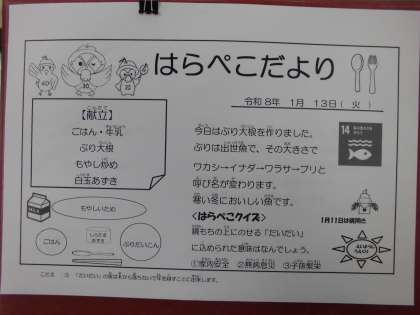 はらぺこだより
令和8年 1月 13日(火)
【献立】
ごはん・牛乳
ぶり大根
もやし炒め
白玉あずき
今日はぶり大根を作りました。
ぶりは出世魚で、その大きさで
ワカシ→イナダ→ワラサ→ブリと
呼び名が変わります。
寒い冬においしい魚です。
<はらぺこクイズ>
鏡もちの上にのせる「だいだい」
に込められた意味はなんでしょう。
①家内安全 ②無病息災 ③子孫繁栄
14
1月11日は鏡開き
MILK
もやしいため
ごはん
しらたま
あずき
ぶりだいこん
こたえ ③